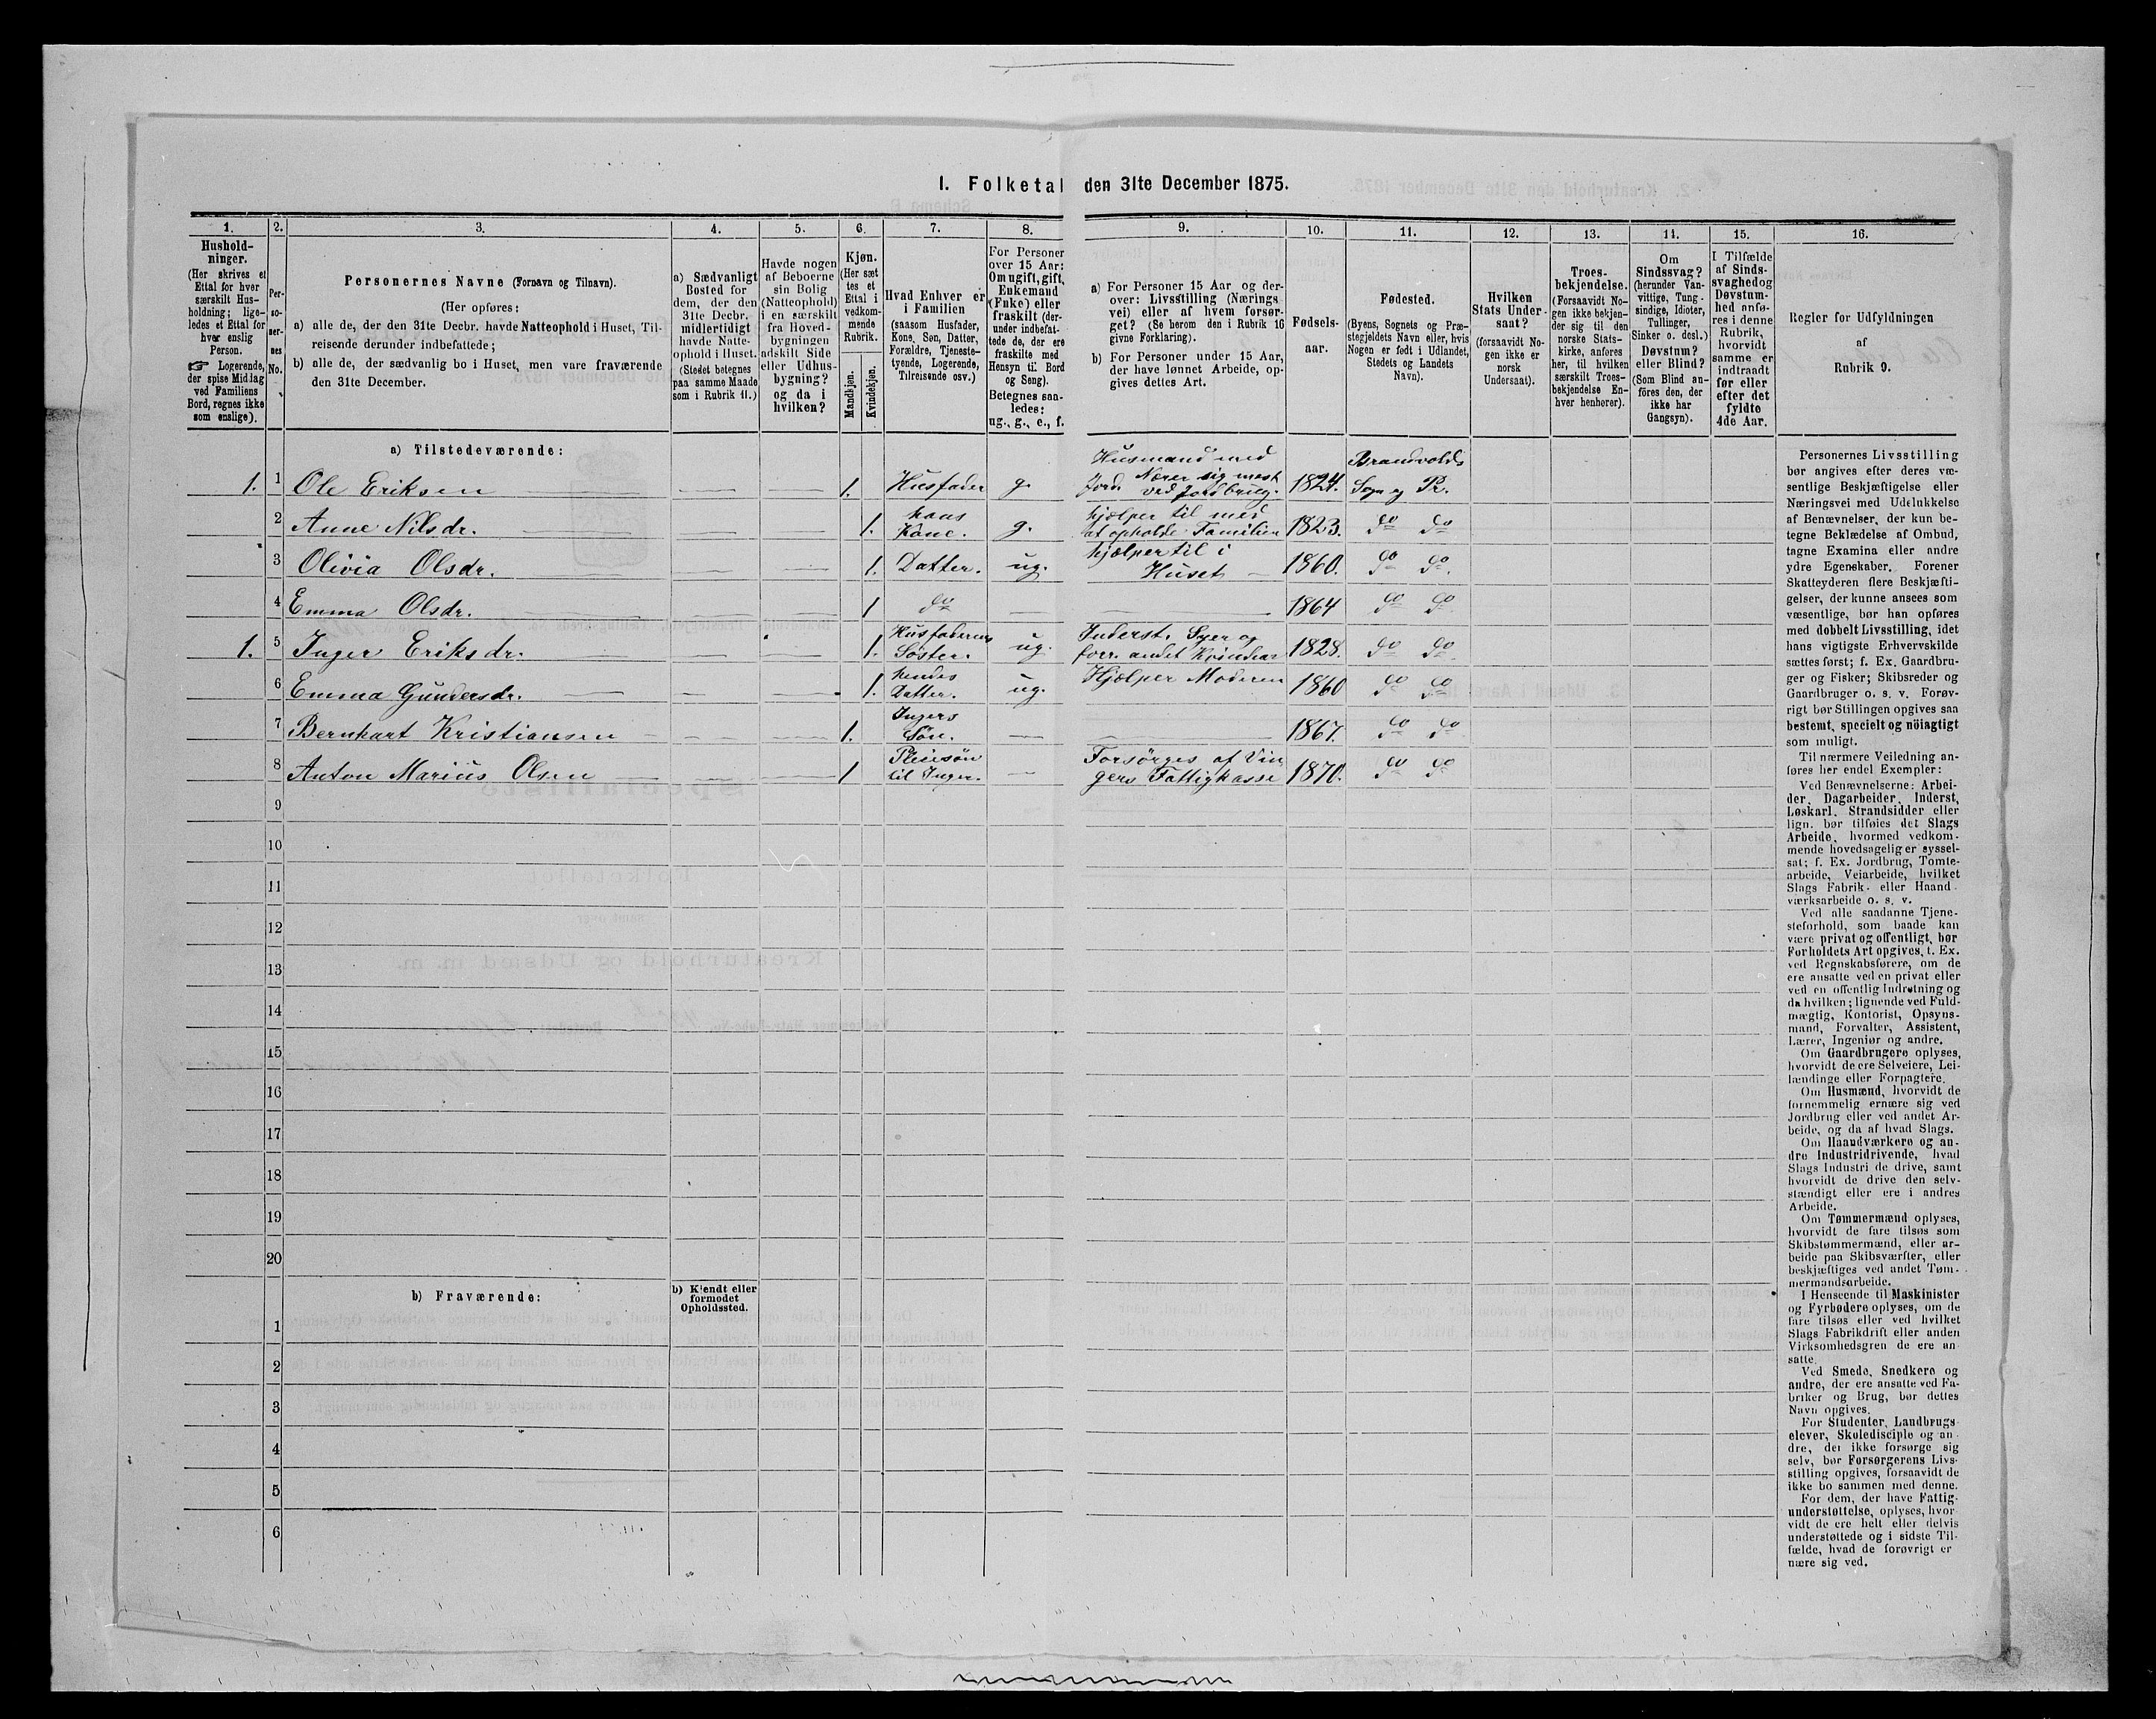 1. Folketal den 31te December 1875.
1.
Hushold-
ninger.
(Her skrives et
Ettal for hver
særskilt Hus-
holdning; lige-
ledes et Ettal for
hver enslig
Person.
☞ Logerende,
der spise Middag
ved Familiens
Bord, regnes ikke
som enslige).
2.
Per-
so-
ner-
nes
No.
3.
Personernes Navne (Fornavn og Tilnavn).
(Her opføres:
a) alle de, der den 31te Decbr. havde Natteophold i Huset, Til-
reisende derunder indbefattede;
b) alle de, der sædvanlig bo i Huset, men vare fraværende
den 31te December.
4.
a) Sædvanligt
Bosted for
dem, der den
31te Decbr.
midlertidigt
havde Natte-
ophold i Huset.
(Stedet betegnes
paa samme Maade
som i Rubrik 11.)
5.
Havde nogen
af Beboerne
sin Bolig
(Natteophold)
i en særskilt
fra Hoved-
bygningen
adskilt Side
eller Udhus-
bygning?
og da i
hvilken?
6.
Kjøn.
(Her sæt
tes et
Ettal i
vedkom-
mende
Rubrik.
Mandkjøn.
Kvindekjøn.
7.
Hvad Enhver er
i Familien
(saasom Husfader,
Kone, Søn, Datter,
Forældre, Tjeneste-
tyende, Logerende,
Tilreisende osv.)
8.
For Personer
over 15 Aar:
Om ugift, gift,
Enkemand
(Enke) eller
fraskilt (der-
under indbefat-
tede de, der ere
fraskilte med
Hensyn til Bord
og Seng).
Betegnes saa-
ledes:
ug., g., e., f.
9.
a) For Personer 15 Aar og der-
over: Livsstilling (Nærings
vei) eller af hvem forsør-
get? (Se herom den i Rubrik 16
givne Forklaring).
b) For Personer under 15 Aar,
der have lønnet Arbeide, op-
gives dettes Art.
10.
Fødsels-
aar.
11.
Fødested.
(Byens, Sognets og Præ-
stegjeldets Navn eller, hvis
Nogen er født i Udlandet,
Stedets og Landets
Navn).
12.
Hvilken
Stats Under-
saat?
(forsaavidt No-
gen ikke er
norsk
Undersaat).
13.
Troes-
bekjendelse.
(Forsaavidt No-
gen ikke bekjen-
der sig til den
norske Stats-
kirke, anføres
her, til hvilken
særskilt Troes-
bekjendelse En-
hver henhører).
14.
Om
Sindssvag?
(herunder Van-
vittige, Tung-
sindige, Idioter,
Tullinger,
Sinker o. desl.)
Døvstum?
eller Blind?
(Som Blind an-
föres den, der
ikke har
Gangsyn).
15.
I Tilfælde
af Sinds-
svaghed og
Døvstum-
hed anfø-
res i denne
Rubrik,
hvorvidt
samme er
indtraadt
før eller
efter det
fyldte
4de Aar.
16.
Regler for Udfyldningen
af
Rubrik 9.
a) Tilstedeværende:
1. 1 Ole Eriksen 1. Husfader g. Husmand med Jord. Nærer sig mest ved Jordbrug. 1824. Brandvolds Sogn og Pr.
2 Anne Nilsdr. 1. hans Kone. g. hjælper til med at opholde Familien 1823. do do
3 Olivia Olsdr. 1. Datter. ug. hjælper til i Huset 1860. do do.
4 Emma Olsdr. 1 do 1864 do do.
1. 5 Inger Eriksdr. 1. Husfaderens Søster. ug. Inderst. Syer og forr. andet Kvindear 1828. do do
6 Emma Gundersdr. 1. hendes Datter. ug. Hjælper Moderen 1860 do do
7 Bernhart Kristiansen 1. Ingers Søn. 1867. do do
8 Anton Marius Olsen 1 Pleiesøn til Inger. Forsørges af Vingers Fattigkasse 1870. do do
9
10
11
12
13
14
15
16
17
18
19
20
b) Fraværende:
b) Kjendt eller
formodet
Opholdssted.
1
2
3
4
5
6
Personernes Livsstilling
bør angives efter deres væ-
sentlige Beskjæftigelse eller
Næringsvei med Udelukkelse
af Benævnelser, der kun be-
tegne Beklædelse af Ombud,
tagne Examina eller andre
ydre Egenskaber. Forener
Skatteyderen flere Beskjæfti-
gelser, der kunne ansees som
væsentlige, bør han opføres
med dobbelt Livsstilling, idet
hans vigtigste Erhvervskilde
sættes først; f. Ex. Gaardbru-
ger og Fisker; Skibsreder og
Gaardbruger o. s. v. Forøv-
rigt bør Stillingen opgives saa
bestemt, specielt og nöiagtigt
som muligt.
Til nærmere Veiledning an-
føres her endel Exempler:
Ved Benævnelserne: Arbei-
der, Dagarbeider, Inderst,
Løskarl, Strandsidder eller
lign. bør tilføies det Slags
Arbeide, hvormed vedkom-
mende hovedsagelig er syssel-
sat; f. Ex. Jordbrug, Tomte-
arbeide, Veiarbeide, hvilket
Slags Fabrik- eller Haand-
værksarbeide o. s. v.
Ved alle saadanne Tjene-
steforhold, som baade kan
være privat og offentligt, bør
Forholdets Art opgives, t. Ex.
ved Regnskabsførere, om de
ere ansatte ved en privat eller
ved en offentlig Indretning og
da hvilken; lignende ved Fuld-
mægtig, Kontorist, Opsyns-
mand, Forvalter, Assistent,
Lærer, Ingeniør og andre.
Om Gaardbrugere oplyses,
hvorvidt de ere Selveiere, Lei-
lændinge eller Forpagtere.
Om Husmænd, hvorvidt de
fornemmelig ernære sig ved
Jordbrug eller ved andet Ar-
beide, og da af hvad Slags.
Om Haandværkere og an-
dre Industridrivende, hvad
Slags Industri de drive, samt
hvorvidt de drive den selv-
stændigt eller ere i andres
Arbeide.
Om Tømmermænd oplyses,
hvorvidt de fare tilsøs som
Skibstømmermænd, eller ar-
beide paa Skibsværfter, eller
beskjæftiges ved andet Tøm-
mermandsarbeide.
I Henseende til Maskinister
og Fyrbødere oplyses, om de
fare tilsøs eller ved hvilket
Slags Fabrikdrift eller anden
Virksomhedsgren de ere an-
satte.
Ved Smede, Snedkere og
andre, der ere ansatte ved Fa-
briker og Brug, bør dettes
Navn opgives.
For Studenter, Landbrugs-
elever, Skoledisciple og an-
dre, der ikke forsørge sig
selv, bør Forsørgerens Livs-
stilling opgives, forsaavidt de
ikke bo sammen med denne.
For dem, der have Fattig-
understøttelse, oplyses, hvor-
vidt de ere helt eller delvis
understøttede og i sidste Til-
fælde, hvad de forøvrigt er-
nære sig ved.